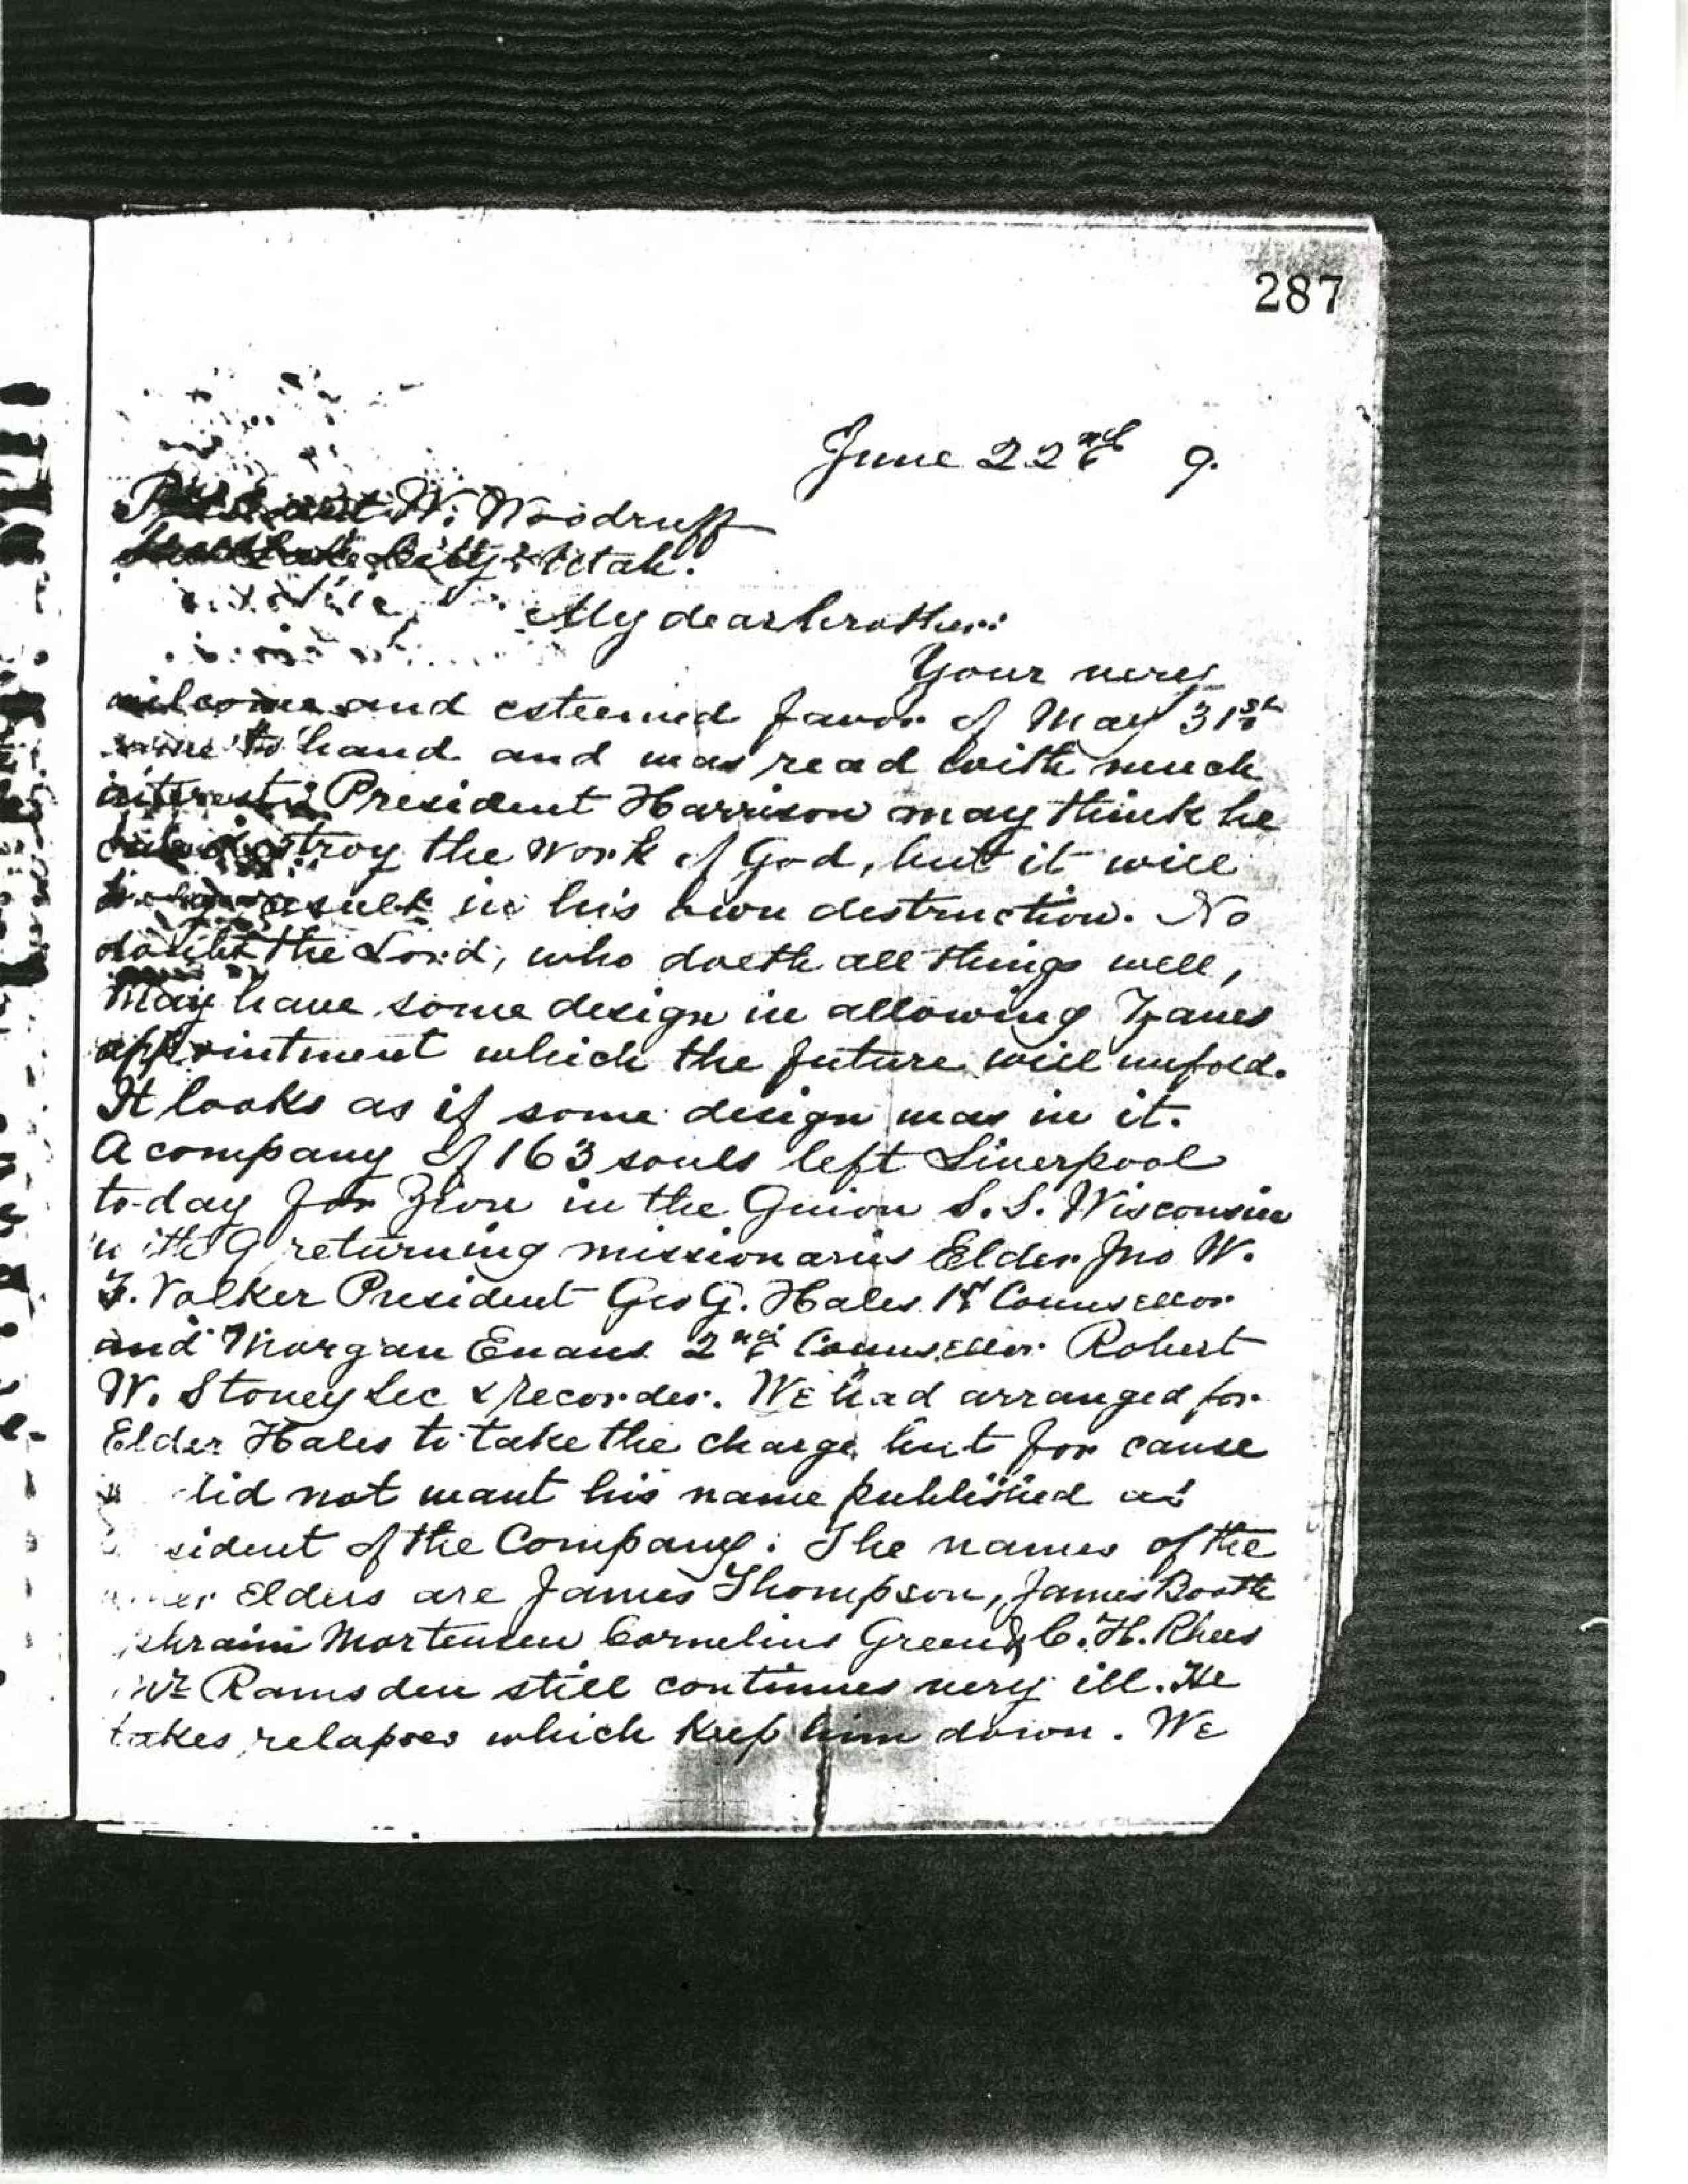 287
June 22nd 9.
President W. Woodruff
Salt Lake City Utah.
My dear brother:
Your very
welcome and esteemed favor of May 31st
came to hand and was read with much
interest. President Harrison may think he
can destroy the work of God, but it will
result in his own destruction. No
doubt the Lord, who doeth all things well,
may have some design in allowing Zanes
appointment which the future will unfold.
It looks as if some design was in it.
A company of 163 souls left Liverpool
to-day for Zion in the Guion S.S. Wisconsin
with 9 returning missionaries Elder Jno W.
F. Volker President Geo G. Hales 1st Counsellor
and Morgan Evans 2nd Counsellor Robert
W. Stoney Sec & recorder. We had arranged for
Elder Hales to take the charge, but for cause
did not want his name published as
sident of the Company. The names of the
Elders are James Thompson, James Booth
phraim Mortensen Cornelius Green & C. H. Rhees
Mr Ramsden still continues very ill. He
takes relapses which keep him down. We